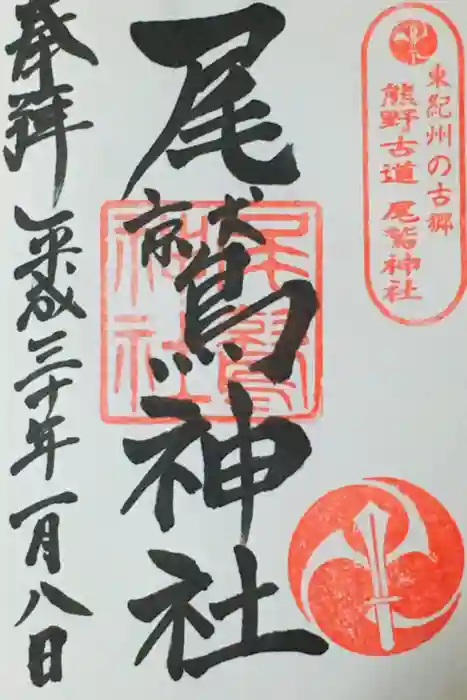 東紀州の古郷
熊野古道 尾鷲神社
尾鷲神社
尾鷲神社
奉拝 平成三十年一月八日